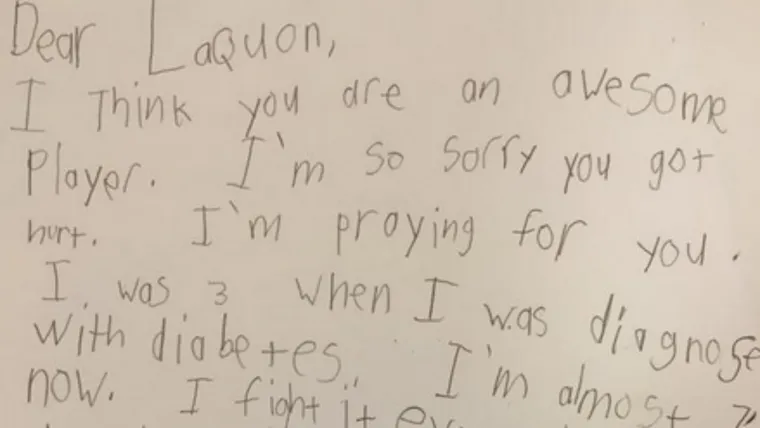 Dear LaQuon,
I Think you are an awesome
Player. I'm so sorry you got
hurt. I'm praying for you.
I was 3 when I was diagnose
with diabetes. I'm almost 7
now. I fight it